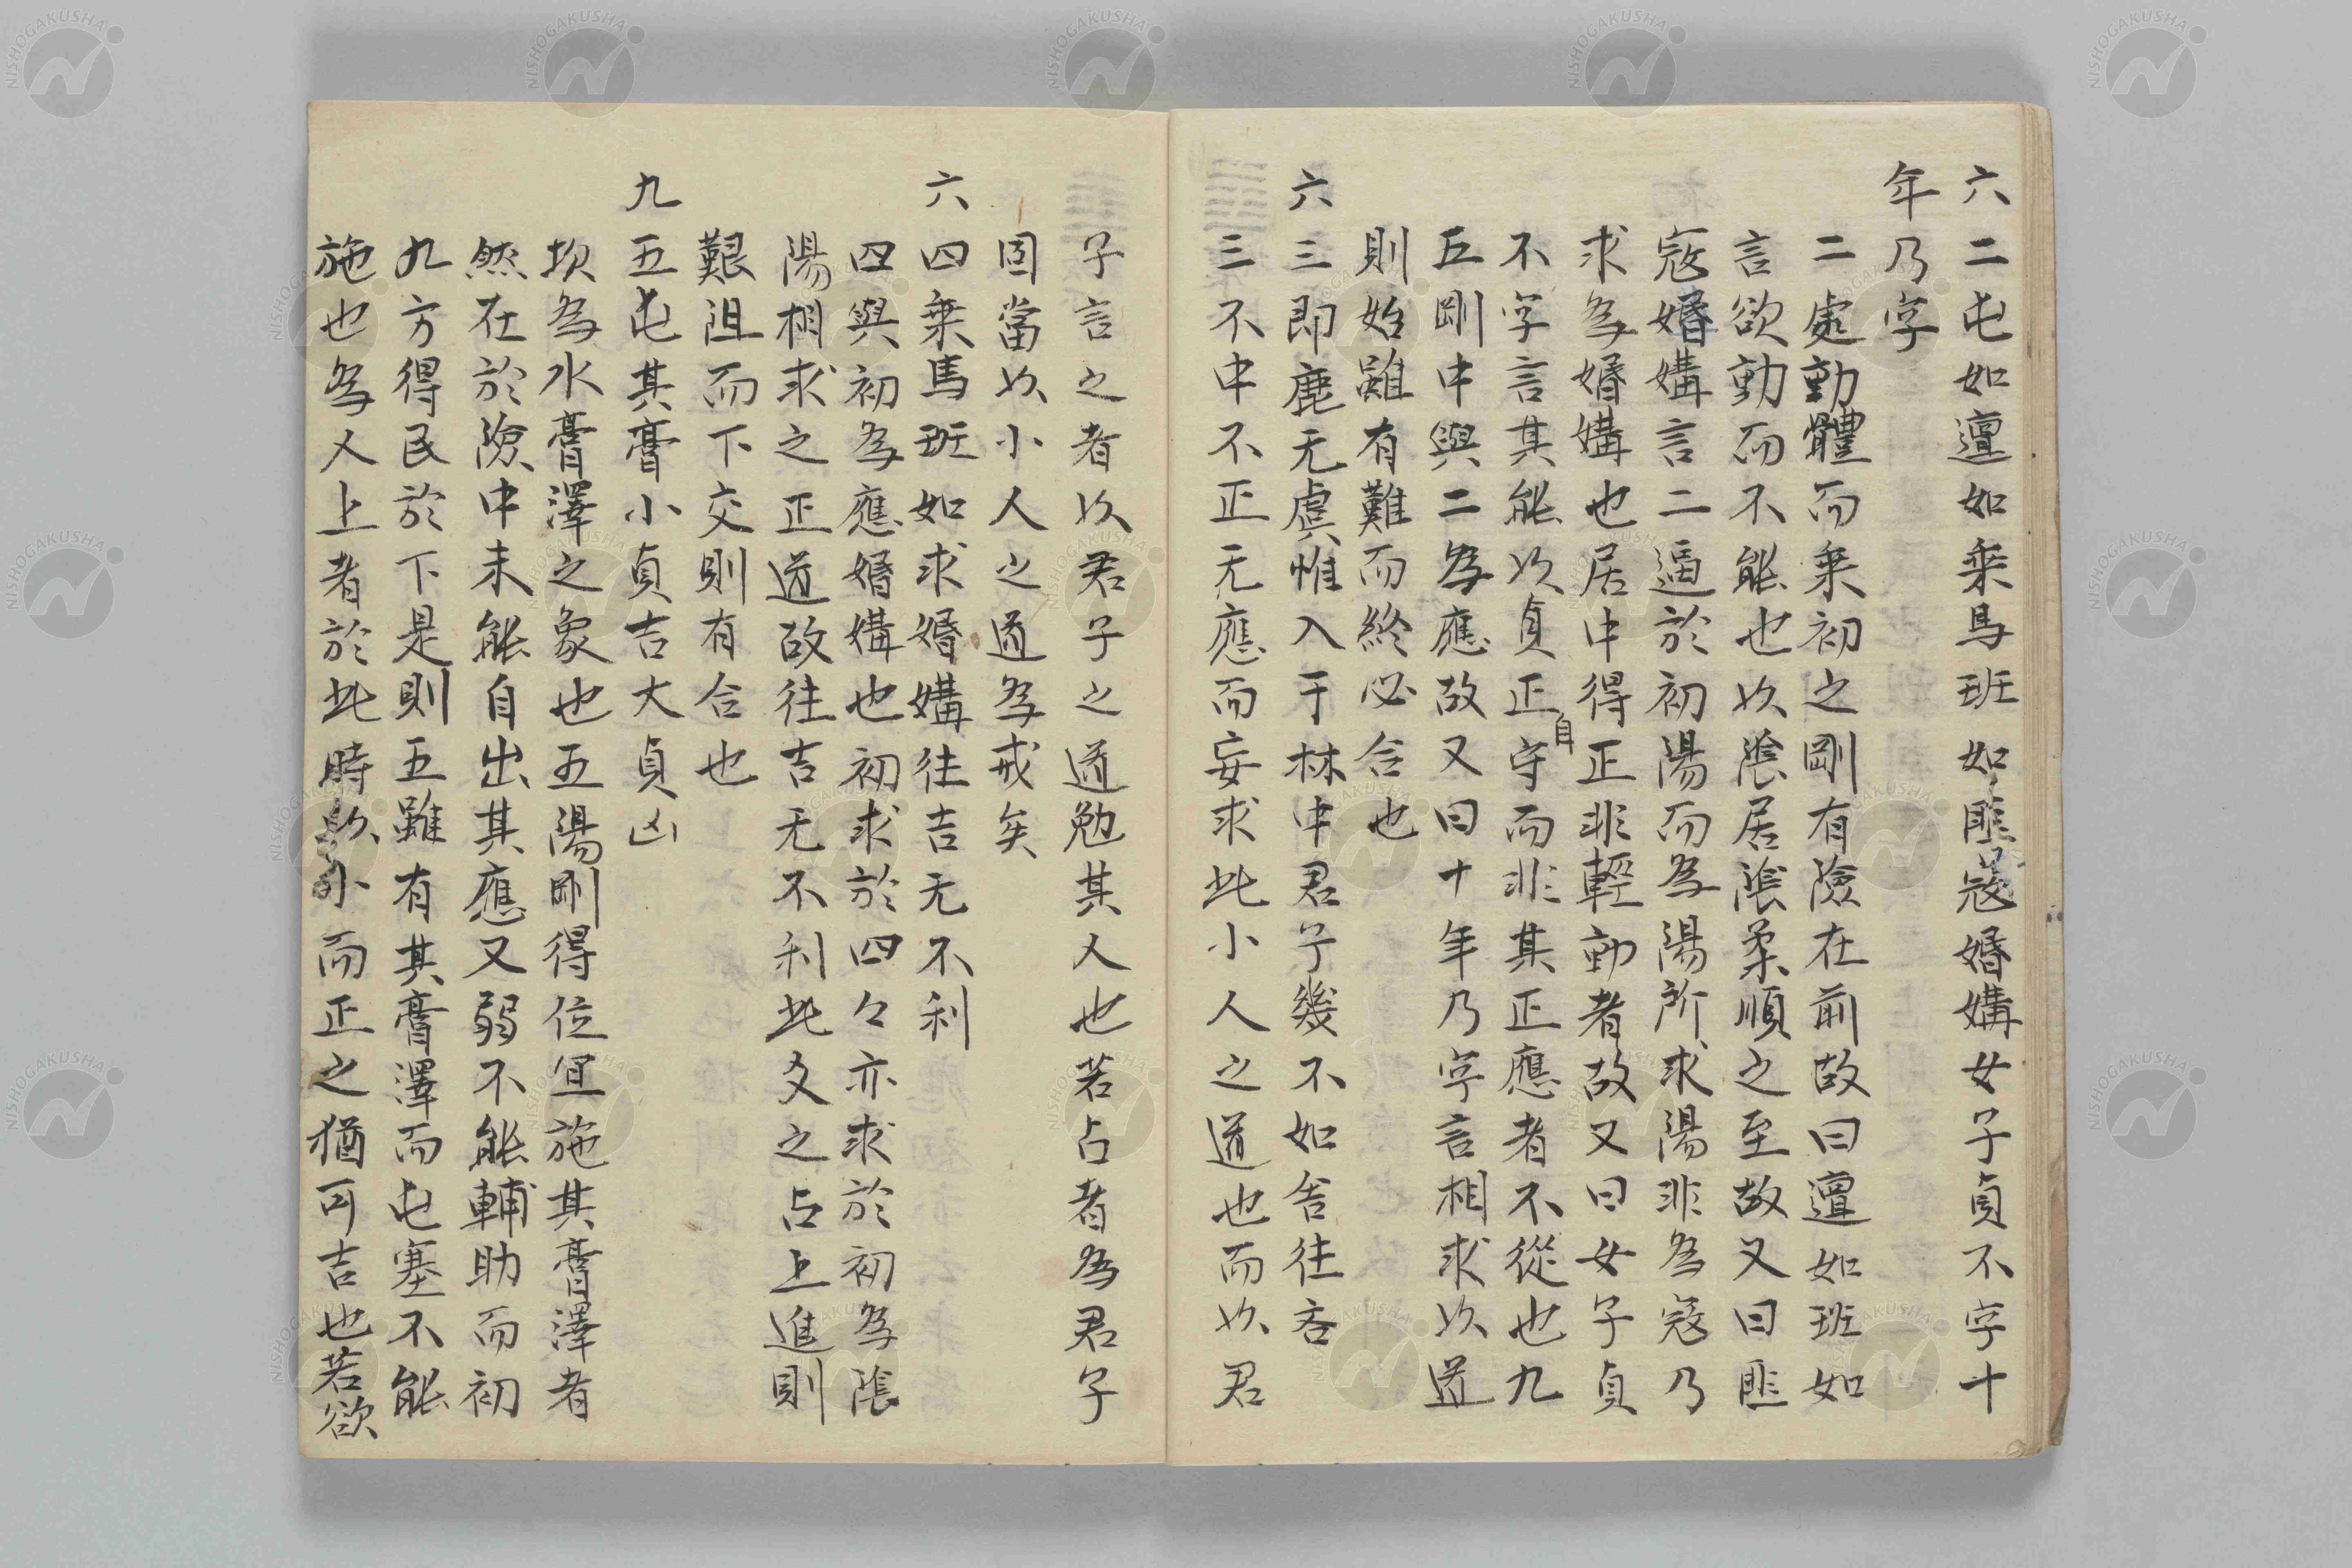 六二屯如邅如乗馬班如匪寇婚媾女子貞不字十
年乃字
二處動體而乗初之剛有險在前故曰邅如班如
言欲動而不能也以陰居陰柔順之至故又曰匪
寇婚媾言二逼於初陽而為陽所求陽非為寇乃
求為婚媾也居中得正非輕動者故又曰女子貞
不字言其能以貞正自守而非其正應者不從也九
五剛中與二為應故又曰十年乃字言相求以道
則始雖有難而終必合也
六三即鹿无虞惟入于林中君子幾不如舍往吝
三不中不正无應而妄求此小人之道也而以君
子言之者以君子之道勉其人也若占者為君子
固當以小人之道為戒矣
六四乗馬班如求婚媾往吉无不利
四與初為應婚媾也初求於四々亦求於初為陰
陽相求之正道故往吉无不利此爻之占上進則
艱阻而下交則有合也
九五屯其膏小貞吉大貞凶
坎為水膏澤之象也五陽剛得位宜施其膏澤者
然在於險中未能自出其應又弱不能輔助而初
九方得民於下是則五雖有其膏澤而屯塞不能
施也為人上者於此時欲小而正之猶可吉也若欲
NISHOGAKUSHA